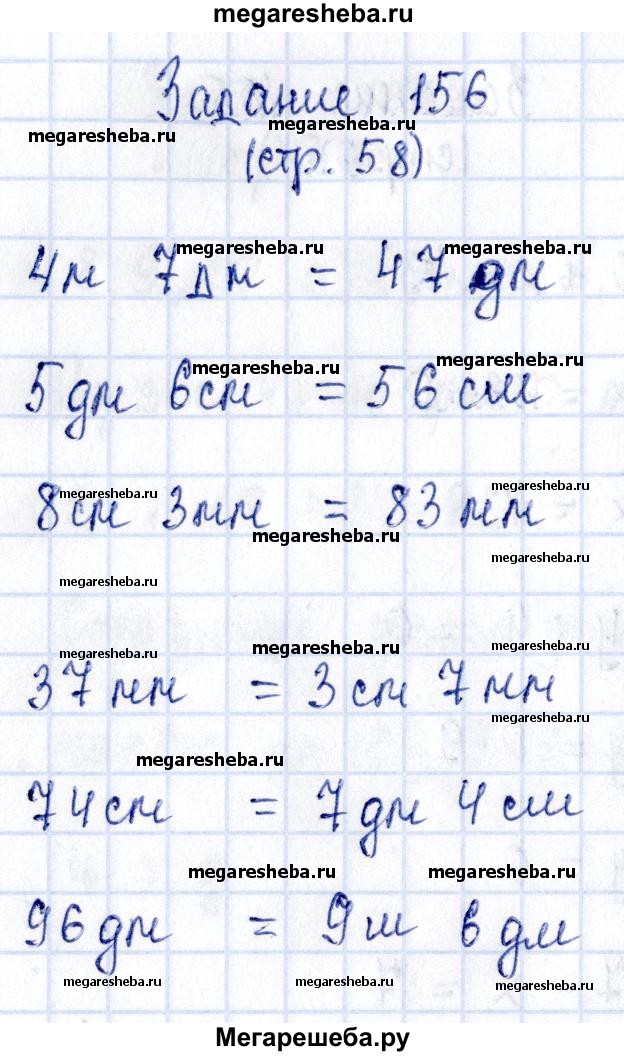 megaresheba.ru
Задание 156
megaresheba.ru megaresheba.ru
(стр. 58)
megaresheba.ru megaresheba.ru
4м 7дм = 47 дм
megaresheba.ru megaresheba.ru
5дм 6см = 56 см
megaresheba.ru megaresheba.ru
8см 3мм = 83 мм
megaresheba.ru
megaresheba.ru megaresheba.ru
megaresheba.ru megaresheba.ru megaresheba.ru
37 мм = 3 см 7 мм
megaresheba.ru
megaresheba.ru
74см = 7 дм 4 см
megaresheba.ru megaresheba.ru
96дм = 9м 6 дм
megaresheba.ru megaresheba.ru megaresheba.ru
Мегарешеба.ру